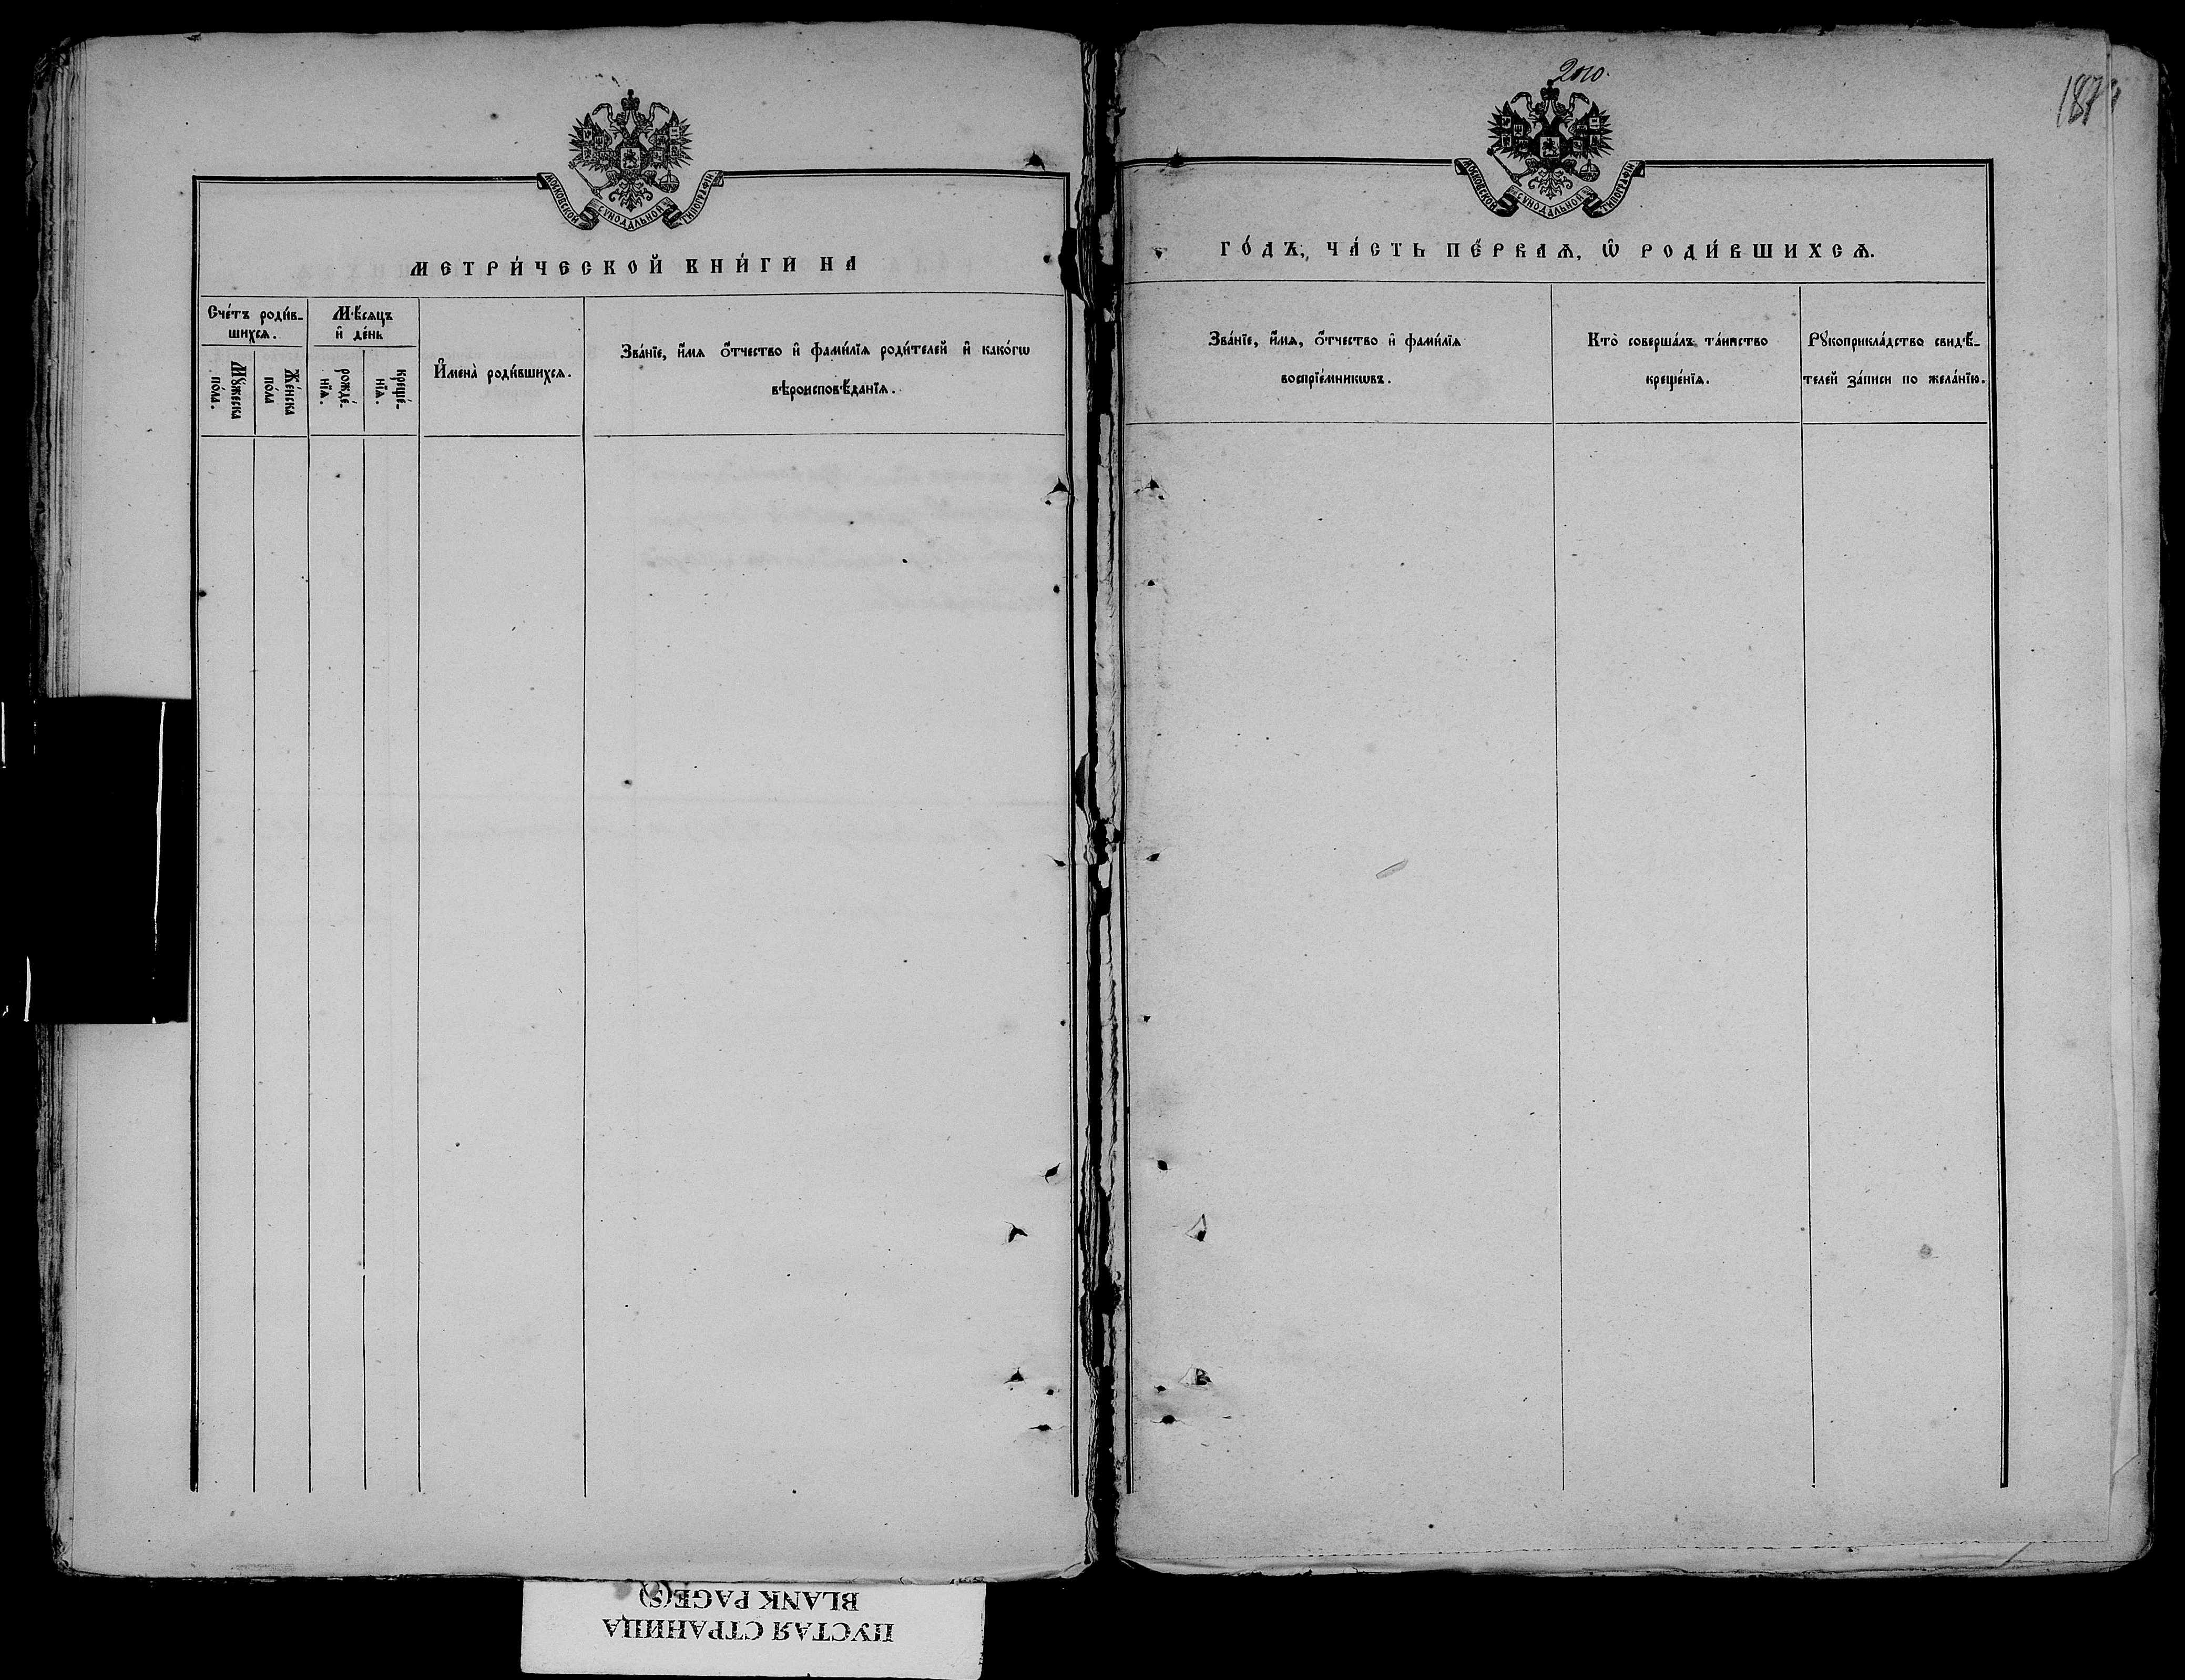 МОСКОВСКОЙ СѴНОДАЛЬНОЙ ТИПОГРАФІИ
МЕТРИ́ЧЕСКОЙ КНИ́ГИ НА
Сче́тъ роди́в-
шихсѧ.
Мꙋ́жеска
по́ла.
Же́нска
по́ла
М́ѣсѧцъ
и҆ де́нь
рожде́-
нїѧ.
креще́-
нїѧ.
И҆мена̀ роди́вшихсѧ.
Зва́нїе, и҆́мѧ ѻ҆́тчество и҆ фами́лїѧ роди́телей и҆ како́гѡ
вѣроисповѣ́данїѧ.
2010.
187
МОСКОВСКОЙ СѴНОДАЛЬНОЙ ТИПОГРАФІИ
ГО́ДЪ, ЧА́СТЬ ПЕ́РВАѦ, Ѡ҆ РОДИ́ВШИХСѦ.
Зва́нїе, и҆́мѧ, ѻ҆́тчество и҆ фами́лїѧ
воспрїе́мникѡвъ.
Кто̀ соверша́лъ та́инство
креще́нїѧ.
Рꙋкоприкла́дство свидѣ́-
телей за́писи по жела́нїю.
ПУСТАЯ СТРАНИЦА
BLANK PAGE(S)